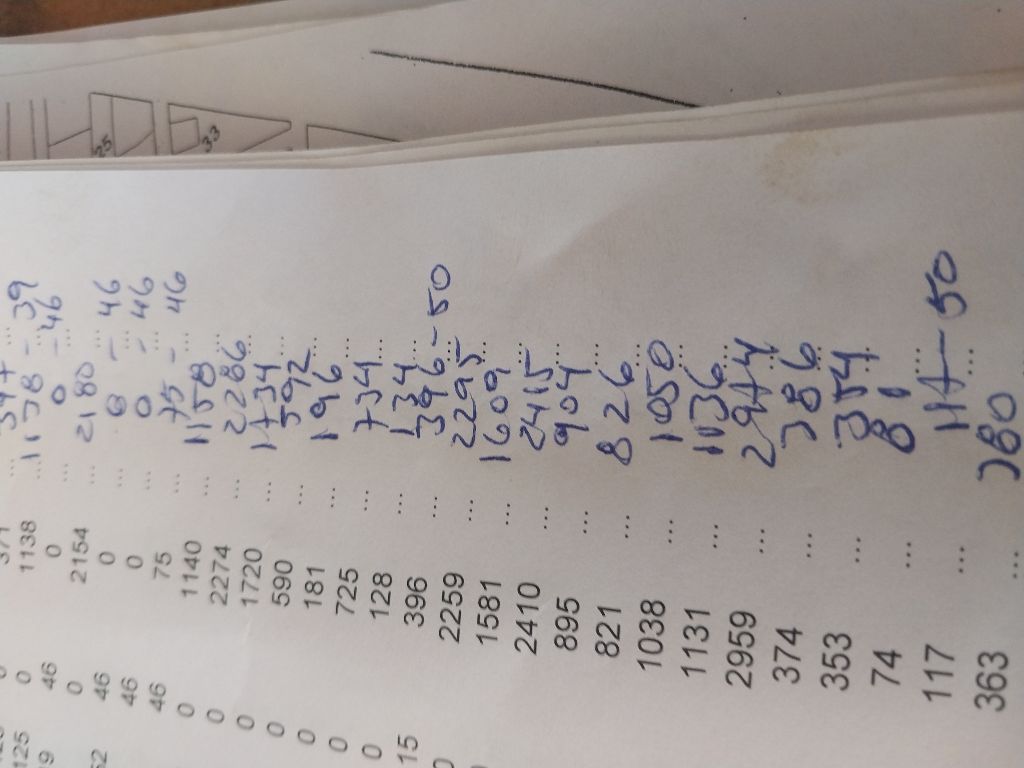 25
33
125 0 1138 ... 1138 ... - 39
9 46 0 ... 0 ... - 46
0 2154 ... 2180 ...
52 46 0 ... 0 ... - 46
46 0 ... 0 ... - 46
46 75 ... 75 ... - 46
0 1140 ... 1158 ...
0 2274 ... 2286 ...
0 1720 ... 1734 ...
0 590 ... 592 ...
0 181 ... 196 ...
0 725 ... 734 ...
0 128 ... 134 ...
15 396 ... 396 ... - 50
2259 ... 2295 ...
1581 ... 1609 ...
2410 ... 2415 ...
895 ... 904 ...
821 ... 826 ...
1038 ... 1050 ...
1131 ... 1036 ...
2959 ... 2974 ...
374 ... 386 ...
353 ... 354 ...
74 ... 81 ...
117 ... 117 ... - 50
363 ... 380 ...